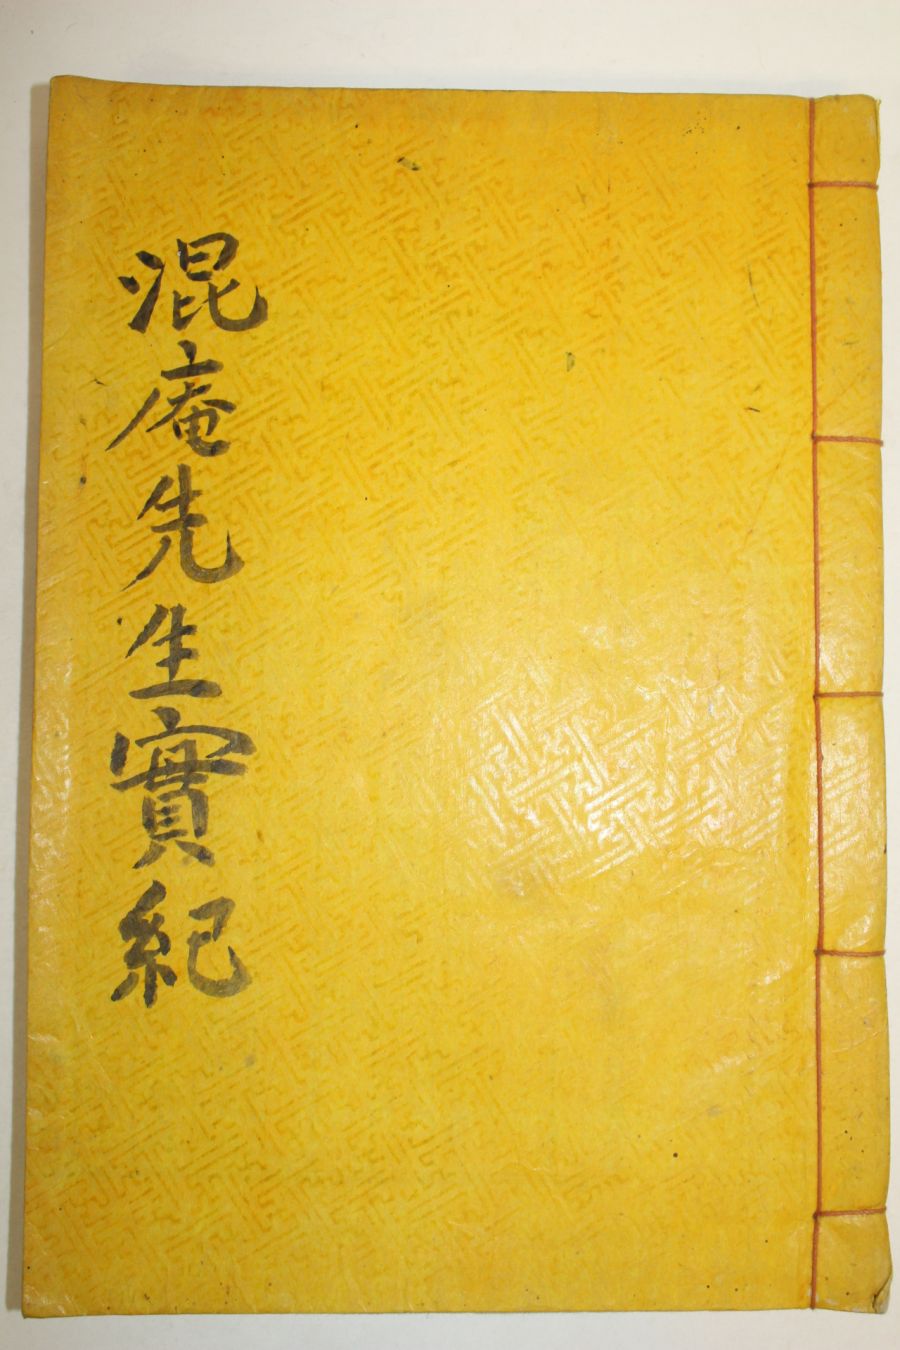 混庵先生實紀